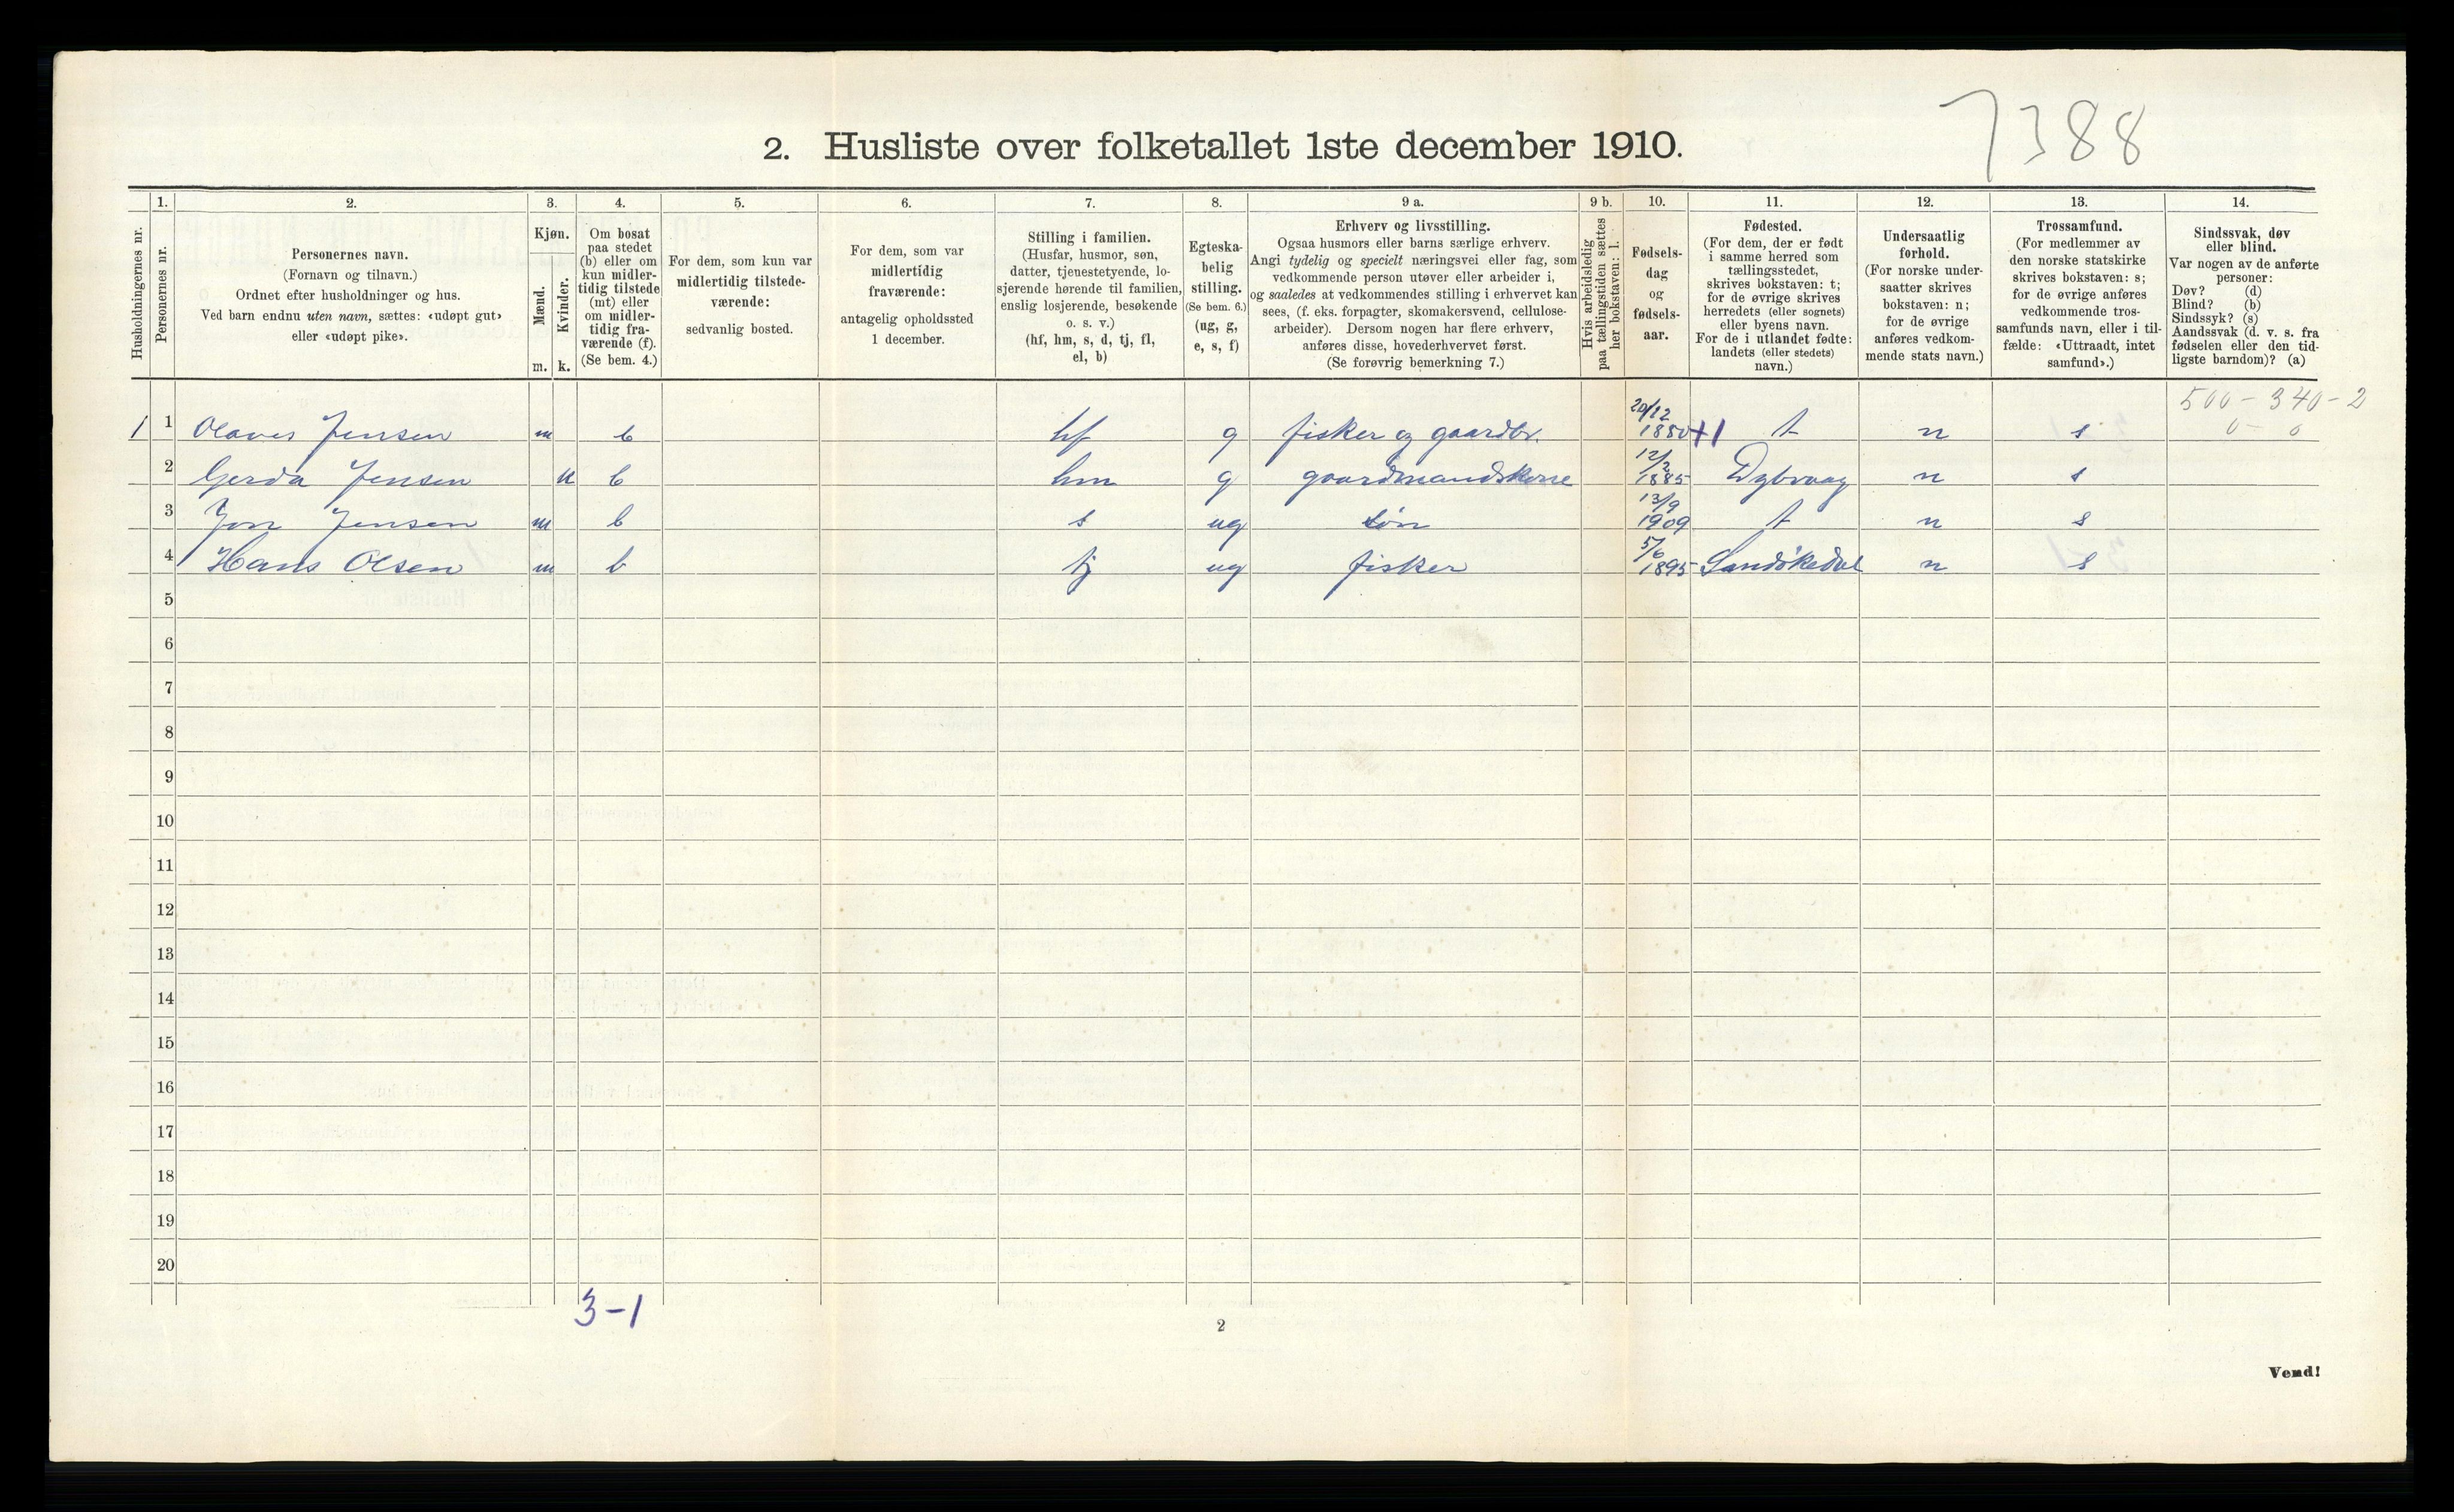 7388
2. Husliste over folketallet 1ste december 1910.
Husholdningernes nr.
1.
Personernes nr.
2.
Personernes navn.
(Fornavn og tilnavn.)
Ordnet efter husholdninger og hus.
Ved barn endnu uten navn, sættes: «udøpt gut»
eller «udøpt pike».
3.
Kjøn.
Mænd.
Kvinder.
m. k.
4.
Om bosat
paa stedet
(b) eller om
kun midler-
tidig tilstede
(mt) eller
om midler-
tidig fra-
værende (f).
(Se bem. 4.)
5.
For dem, som kun var
midlertidig tilstede-
værende:
sedvanlig bosted.
6.
For dem, som var
midlertidig
fraværende:
antagelig opholdssted
1 december.
7.
Stilling i familien.
(Husfar, husmor, søn,
datter, tjenestetyende, lo-
sjerende hørende til familien,
enslig losjerende, besøkende
o. s. v.)
(hf, hm, s, d, tj, fl,
el, b)
8.
Egteska-
belig
stilling.
(Se bem. 6.)
(ug, g,
e, s, f)
9 a.
Erhverv og livsstilling.
Ogsaa husmors eller barns særlige erhverv.
Angi tydelig og specielt næringsvei eller fag, som
vedkommende person utøver eller arbeider i,
og saaledes at vedkommendes stilling i erhvervet kan
sees, (f. eks. forpagter, skomakersvend, cellulose-
arbeider). Dersom nogen har flere erhverv,
anføres disse, hovederhvervet først.
(Se forøvrig bemerkning 7.)
9 b.
Hvis arbeidsledig
paa tællingstiden sættes
her bokstaven: l.
10.
Fødsels-
dag
og
fødsels-
aar.
11.
Fødested.
(For dem, der er født
i samme herred som
tællingsstedet,
skrives bokstaven: t;
for de øvrige skrives
herredets (eller sognets)
eller byens navn.
For de i utlandet fødte:
landets (eller stedets)
navn.)
12.
Undersaatlig
forhold.
(For norske under-
saatter skrives
bokstaven: n;
for de øvrige
anføres vedkom-
mende stats navn.)
13.
Trossamfund.
(For medlemmer av
den norske statskirke
skrives bokstaven: s;
for de øvrige anføres
vedkommende tros-
samfunds navn, eller i til-
fælde: «Uttraadt, intet
samfund».)
14.
Sindssvak, døv
eller blind.
Var nogen av de anførte
personer:
Døv? (d)
Blind? (b)
Sindssyk? (s)
Aandssvak (d. v. s. fra
fødselen eller den tid-
ligste barndom)? (a)
500 - 340 - 2
0 - 0
1 1 Olaves Jensen m b hf g fisker og gaardbr. 20/12 1880 +1 t n s
2 Gerda Jensen k b hm g gaardmandskone 12/2 1885 Dybvaag n s
3 Jon Jensen m b s ug søn 13/9 1909 t n s
4 Hans Olsen m b tj ug fisker 5/6 1895 Sandøkedal n s
5
6
7
8
9
10
11
12
13
14
15
16
17
18
19
20
3-1
2
Vend!